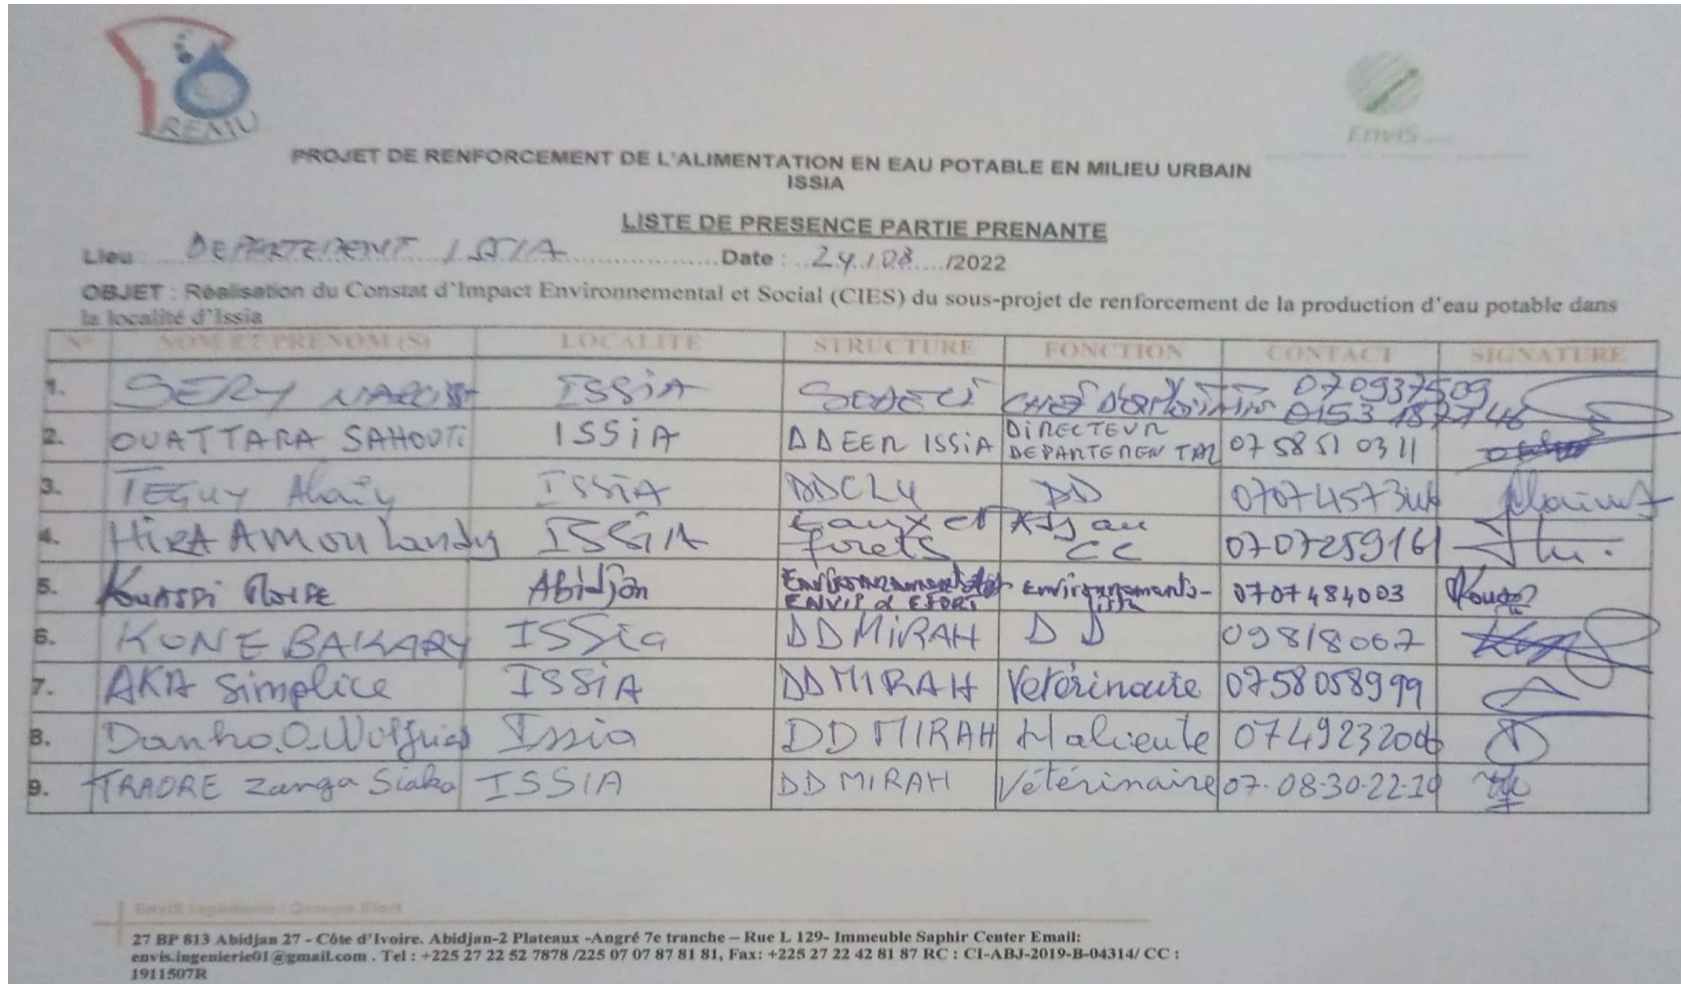 REMU
EnviS
PROJET DE RENFORCEMENT DE L'ALIMENTATION EN EAU POTABLE EN MILIEU URBAIN
ISSIA
LISTE DE PRESENCE PARTIE PRENANTE
Lieu : DEPARTEMENT ISSIA Date : 24/08/2022
OBJET : Réalisation du Constat d'Impact Environnemental et Social (CIES) du sous-projet de renforcement de la production d'eau potable dans
la localité d'Issia
N° NOM ET PRENOM (S) LOCALITE STRUCTURE FONCTION CONTACT SIGNATURE
1. SERY ISSIA SODECI CHEF D'exploitation 070937509
0153187746
2. OUATTARA SAHOUTI ISSIA DDEEN ISSIA DIRECTEUR DEPARTEMENTAL 07 58 51 03 11
3. TEGUY ISSIA DD
4. HIRA AMON Landry ISSIA Eaux et forets Adj au CC 0707259161
5. KOUASSI Abidjan ENVIS & EFORT Environnementaliste 0707484003
6. KONE BAKARY ISSia DD MIRAH DD 09818007
7. AKA Simplice ISSIA DD MIRAH Vetérinaire 0758058999
8. Danho.O. Issia DD MIRAH 0749232006
9. TRAORE Zanga Siaka ISSIA DD MIRAH Vétérinaire 07.08.30.22.19
EnviS Ingénierie / Groupe Efort
27 BP 813 Abidjan 27 - Côte d'Ivoire. Abidjan-2 Plateaux -Angré 7e tranche – Rue L 129- Immeuble Saphir Center Email:
envis.ingenierie01@gmail.com . Tel : +225 27 22 52 7878 /225 07 07 87 81 81, Fax: +225 27 22 42 81 87 RC : CI-ABJ-2019-B-04314/ CC :
1911507R